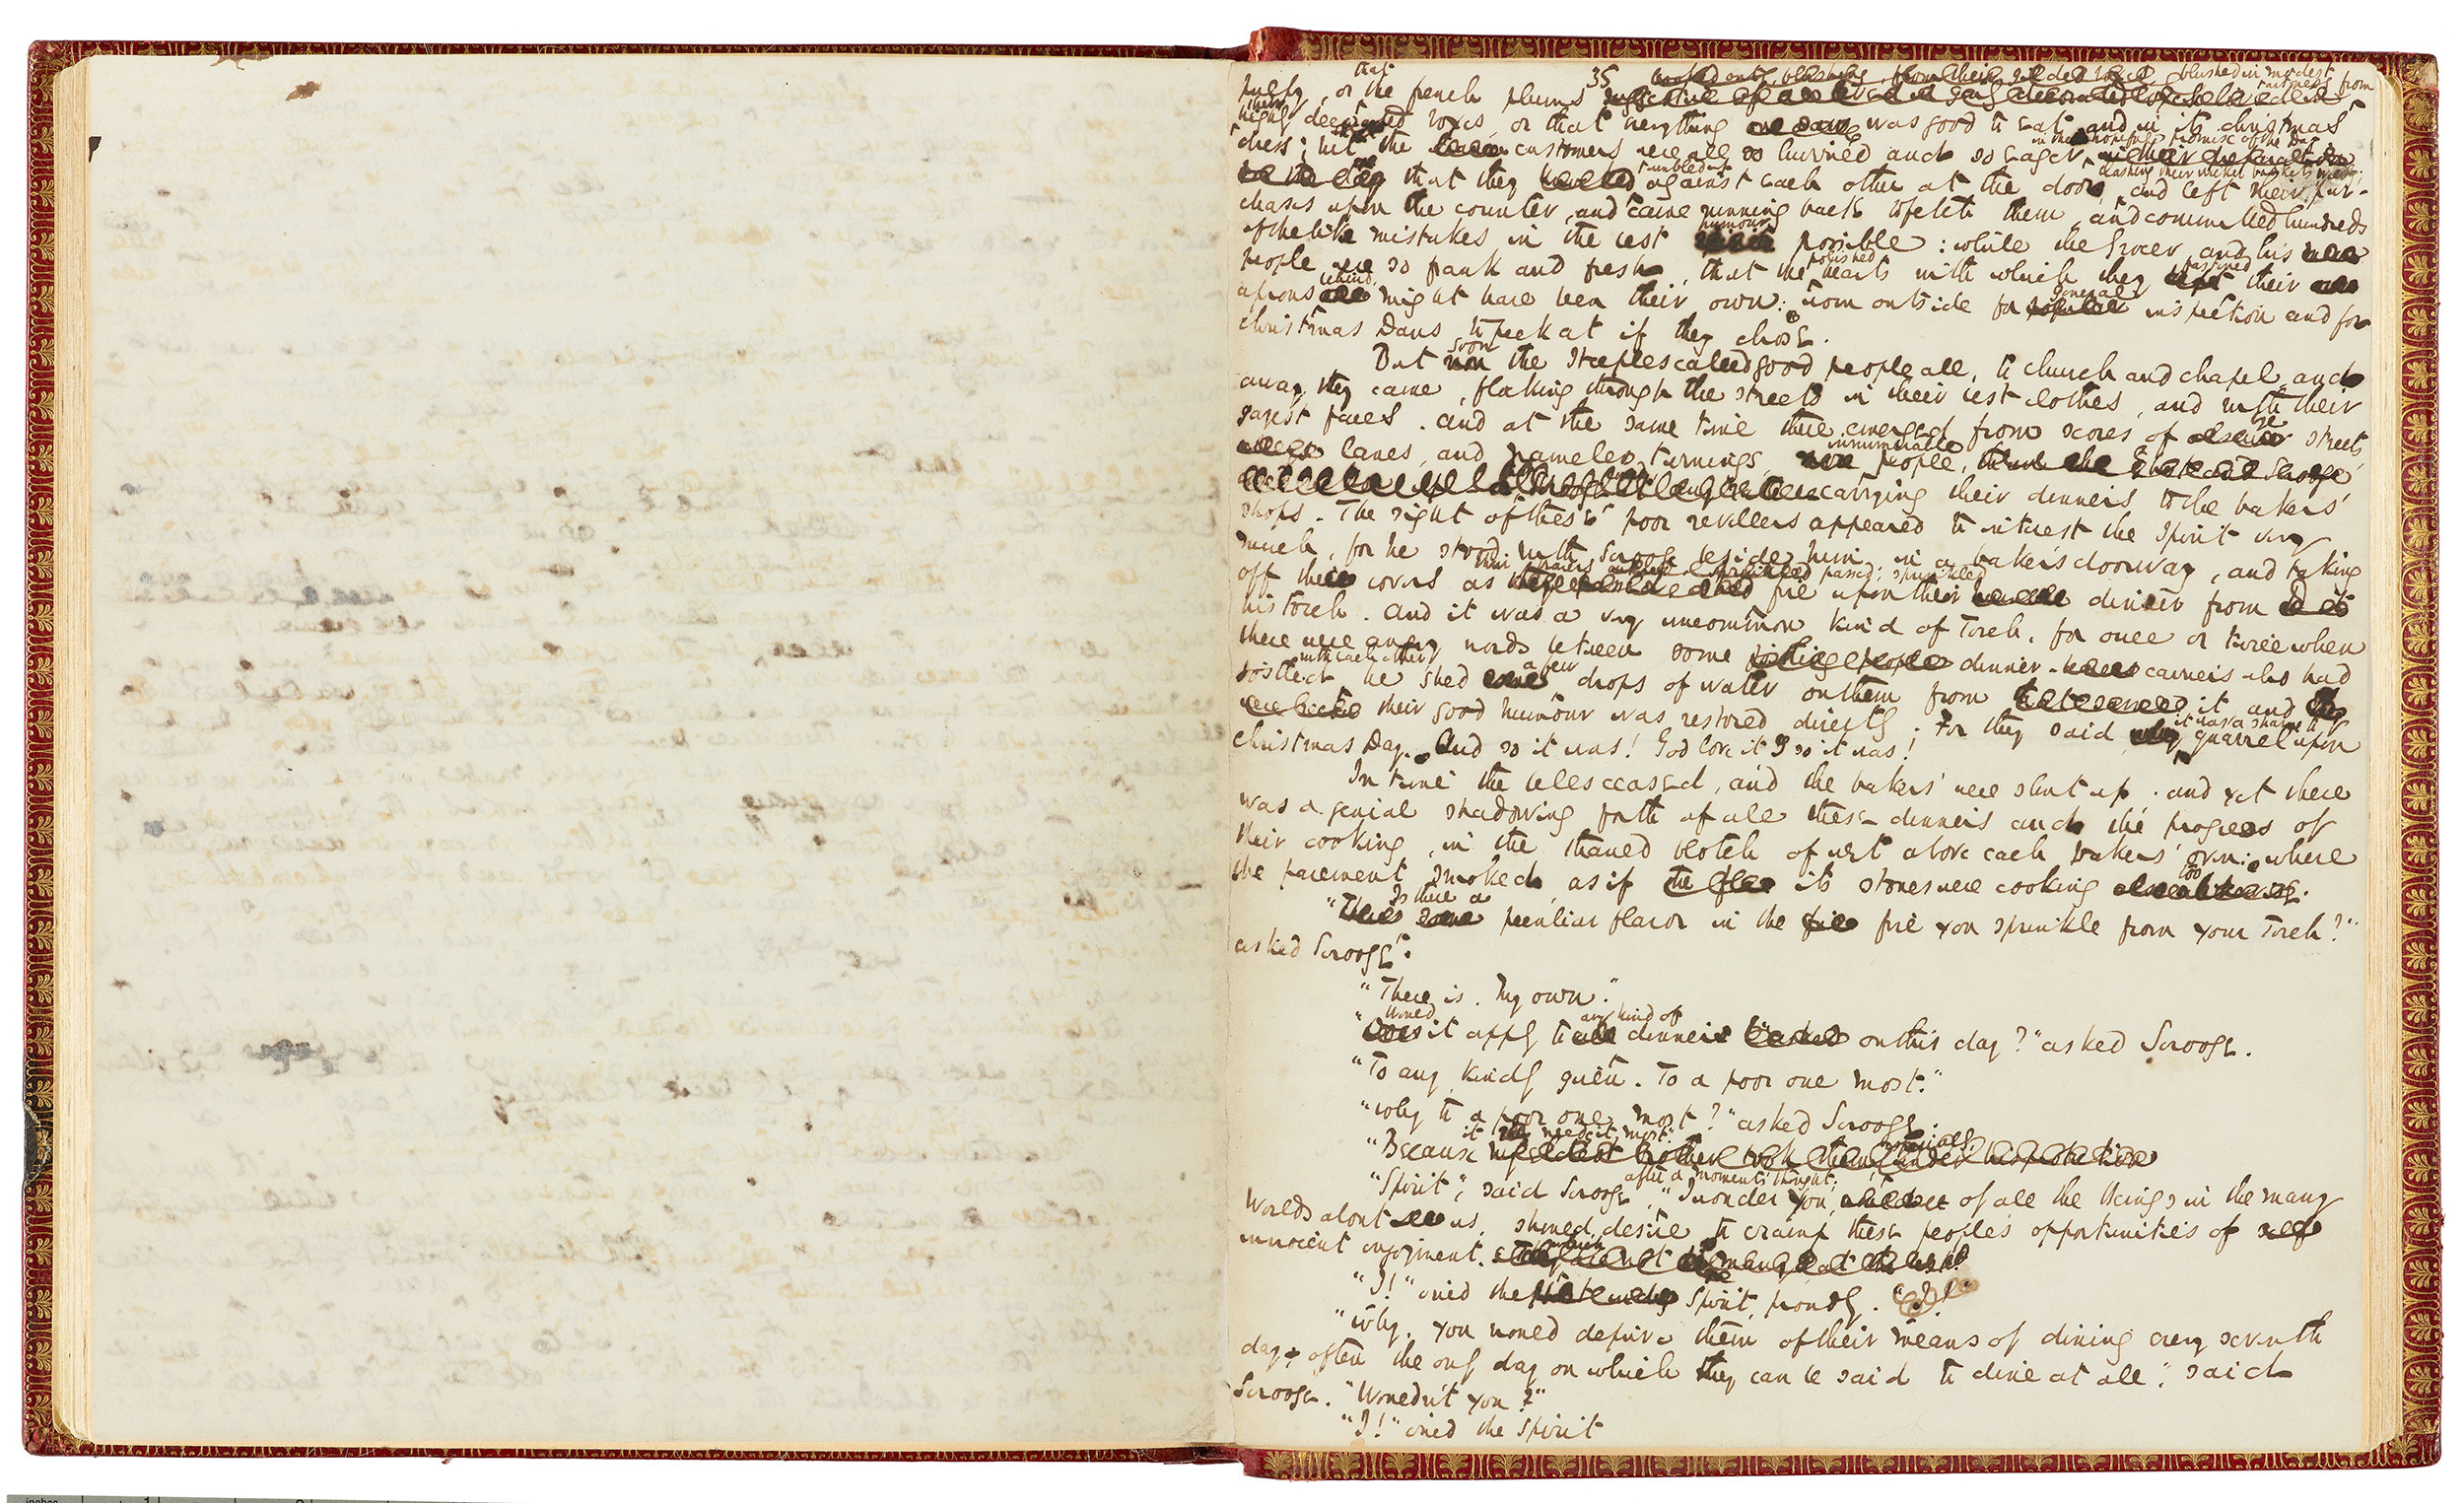 35
pulpy, or that the french plums blushed in modest tartness from
their highly decorated boxes, or that everything was good to eat and in its christmas
dress; but the customers were all so hurried and so eager in the hopeful promise of the Day
that they tumbled up against each other at the door, clashing their wicker baskets wildly; and left their pur-
chases upon the counter, and came running back to fetch them, and committed hundreds
of the like mistakes in the best humour possible: while the Grocer and his
people were so frank and fresh, that the polished hearts with which they fastened their
aprons behind might have been their own: worn outside for general inspection and for
christmas Daws to peck at if they chose.
But soon the steeples called good people all, to church and chapel, and
away they came, flocking through the streets in their best clothes, and with their
gayest faces. and at the same time there emerged from scores of bye streets,
lanes, and nameless turnings, innumerable people,
carrying their dinners to the bakers'
shops. The sight of these poor revellers appeared to interest the Spirit very
much, for he stood with Scrooge beside him in a baker's doorway, and taking
off the covers as their bearers passed, sprinkled fire upon their dinner from
his torch. and it was a very uncommon kind of Torch, for once or twice when
there were angry words between some dinner-carriers who had
jostled with each other, he shed a few drops of water on them from it and
their good humour was restored directly. For they said it was a shame to quarrel upon
christmas Day. And so it was! God love it so it was!
In time the bells ceased, and the bakers' were shut up. and yet there
was a genial shadowing forth of all these dinners and the progress of
their cooking, in the thawed blotch of wet above each bakers' oven: where
the pavement smoked, as if its stones were cooking too.
"Is there a peculiar flavor in the fire you sprinkle from your Torch?"
asked Scrooge.
"There is. My own."
"Would it apply to any kind of dinner on this day?" asked Scrooge.
"To any kindly given. To a poor one most."
"Why to a poor one most?" asked Scrooge.
"Because it needs it most."
"Spirit", said Scrooge, after a moment's thought; "I wonder you, of all the beings in the many
worlds about us, should desire to cramp these people's opportunities of
innocent enjoyment.
"I!" cried the Spirit
"Why, you would deprive them of their means of dining every seventh
day, often the only day on which they can be said to dine at all", said
Scrooge. "Wouldn't you?"
"I!" cried the Spirit
inches 1 2